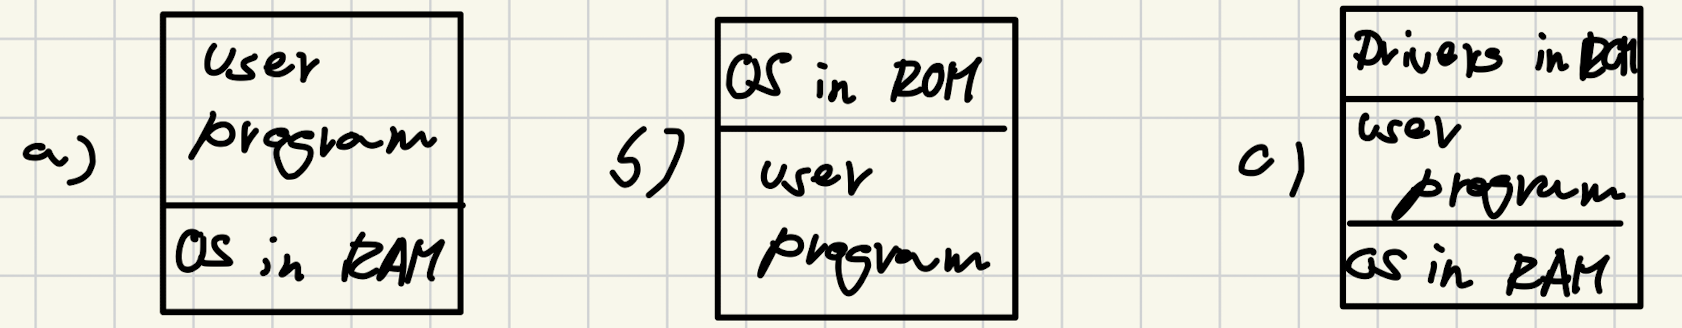 a)
user
program
OS in RAM
b)
OS in ROM
user
program
c)
Drivers in ROM
user
program
OS in RAM